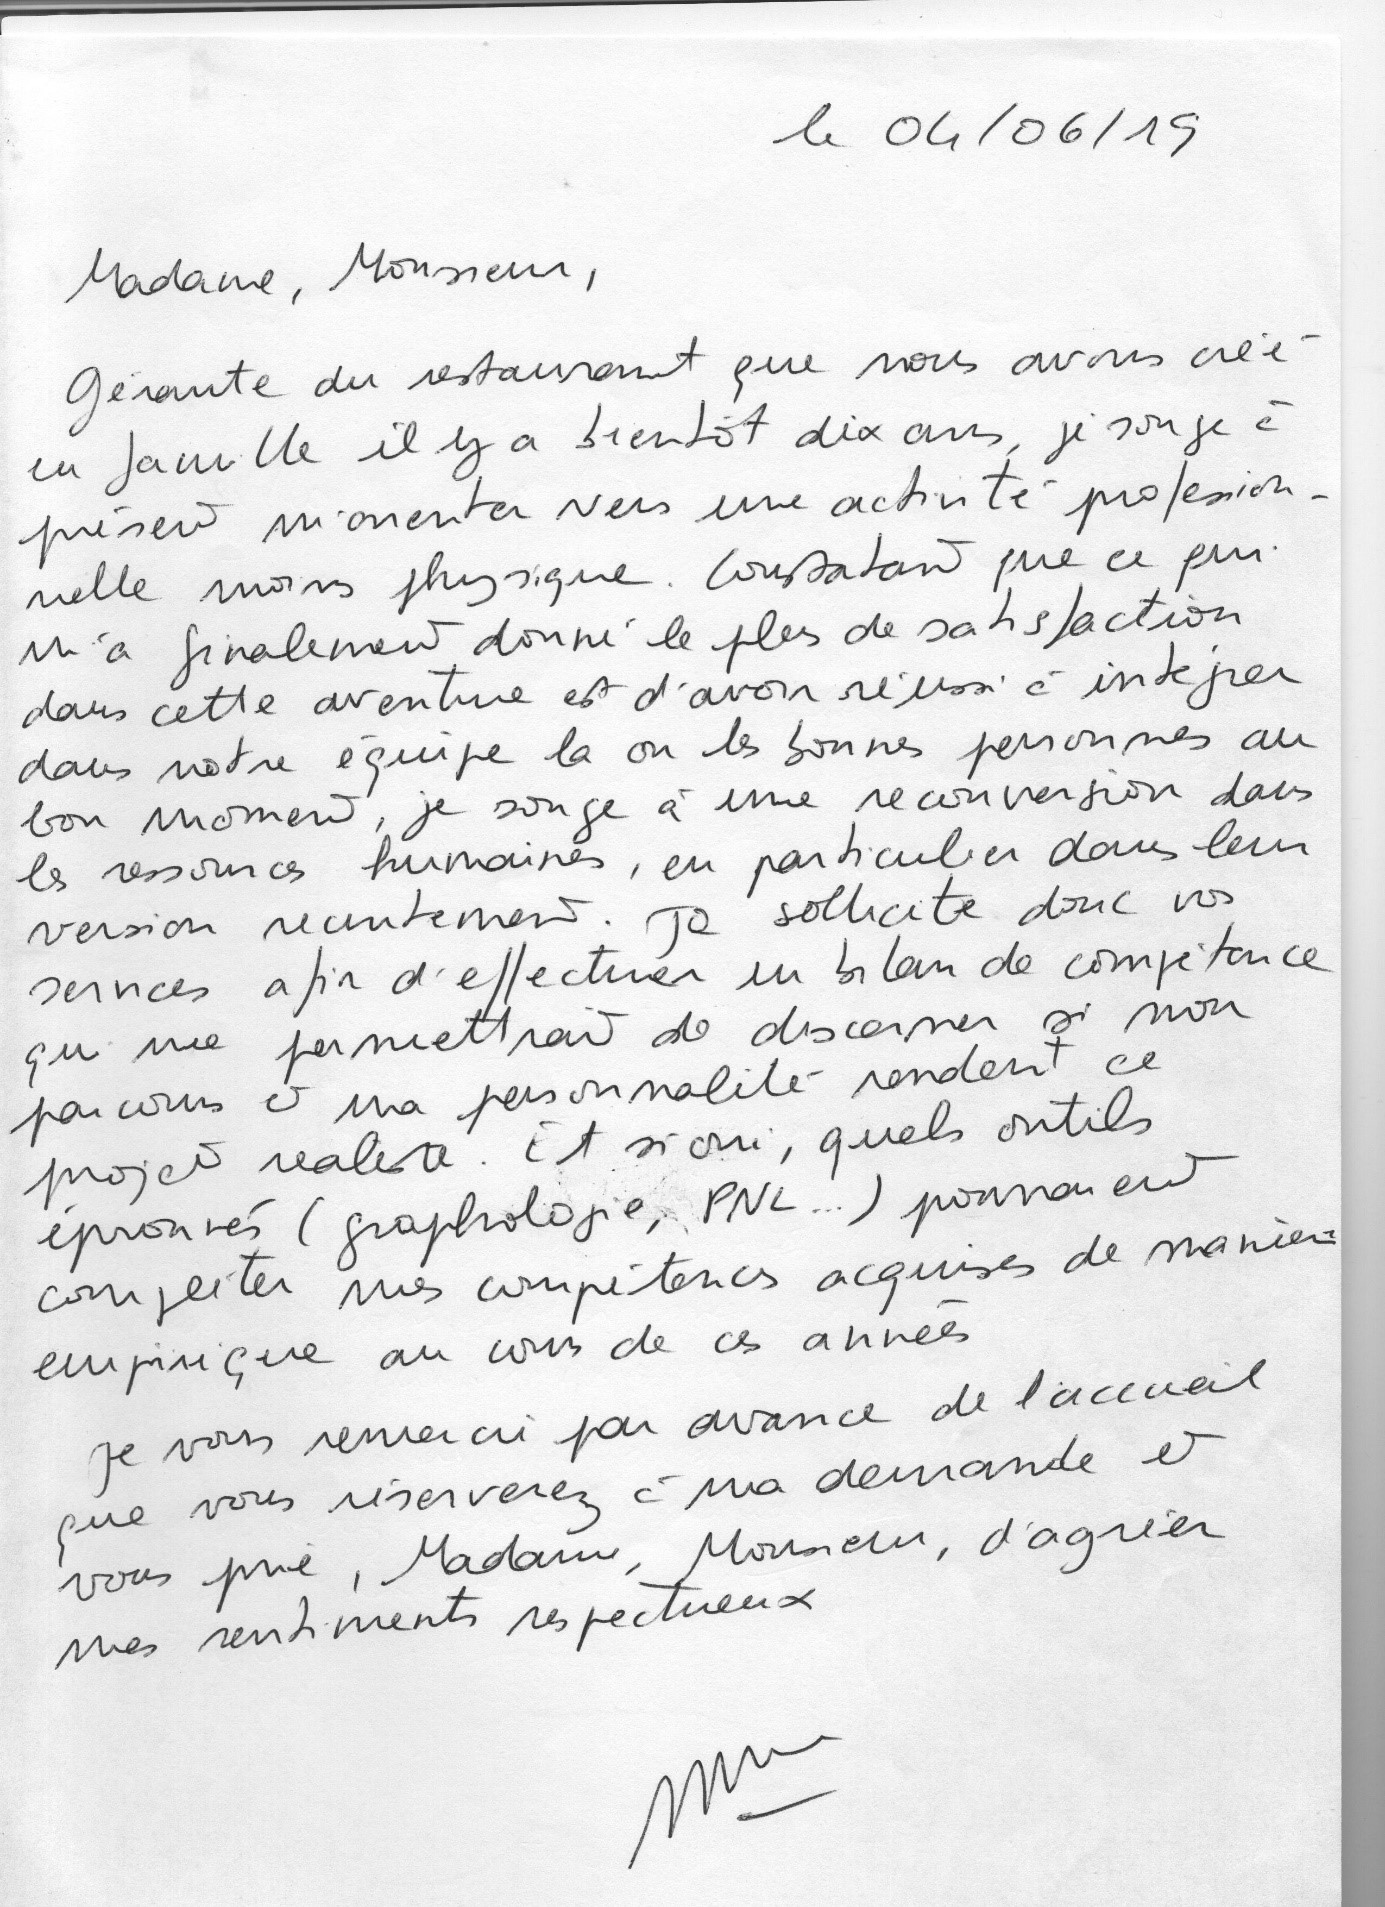 le 04/06/19
Madame, Monsieur,
Gérante du restaurant que nous avons créé
en famille il y a bientôt dix ans, je songe à
présent m'orienter vers une activité profession-
nelle moins physique. Constatant que ce qui
m'a finalement donné le plus de satisfaction
dans cette aventure est d'avoir réussi à intégrer
dans notre équipe la ou les bonnes personnes au
bon moment, je songe à une reconversion dans
les ressources humaines, en particulier dans leur
version recrutement. Je sollicite donc vos
services afin d'effectuer un bilan de compétence
qui me permettrait de discerner si mon
parcours et ma personnalité rendent ce
projet réaliste. Et si oui, quels outils
éprouvés (graphologie, PNL...) pourraient
compléter mes compétences acquises de manière
empirique au cours de ces années
Je vous remercie par avance de l'accueil
que vous réserverez à ma demande et
vous prie, Madame, Monsieur, d'agréer
mes sentiments respectueux